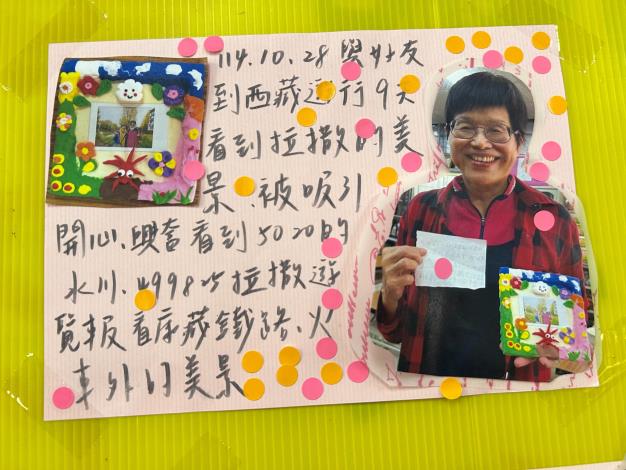 114.10.28 與好友
到西藏遊行9天
看到拉撒的美
景.被吸引
開心、興奮看到5020的
冰川.4998的拉撒遊
覽車看康藏鐵路、火
車外的美景